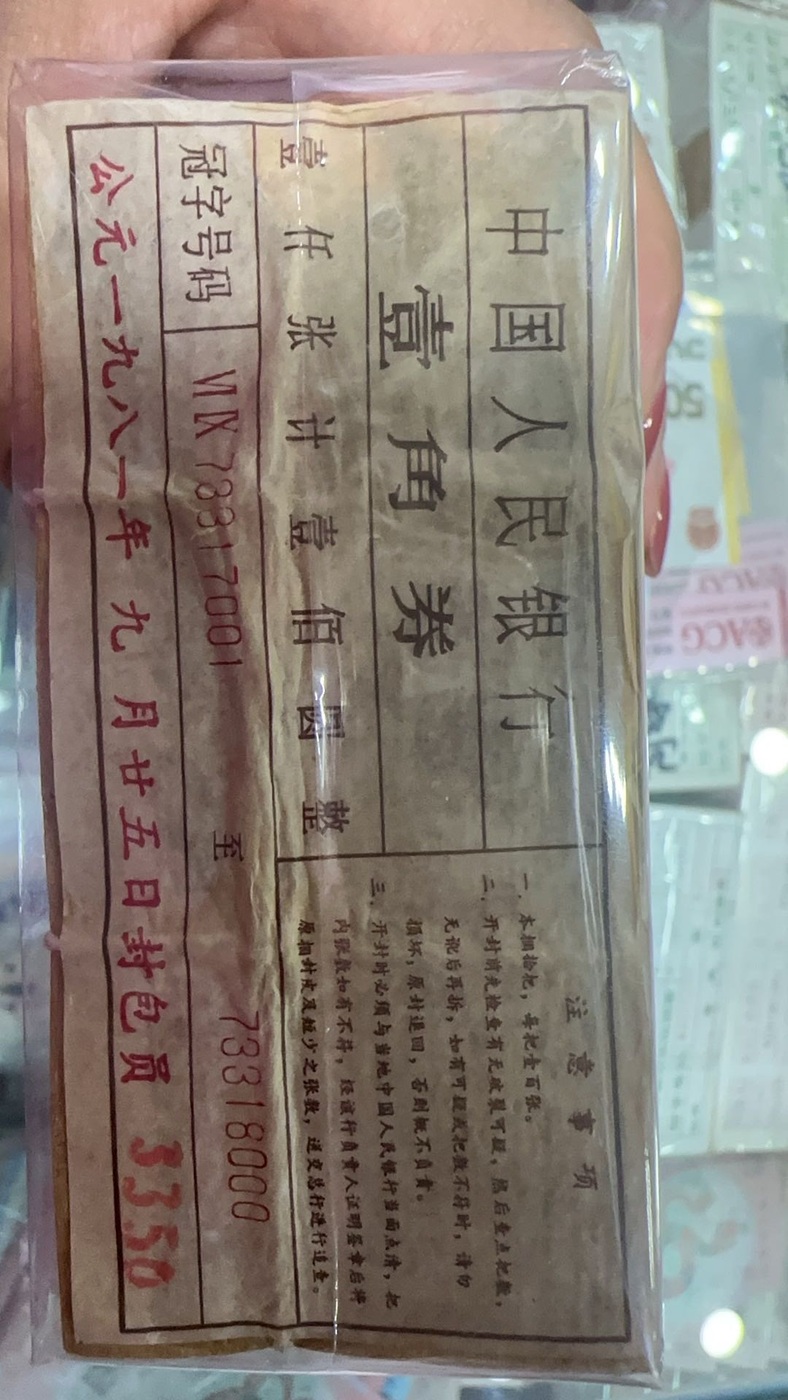 中国人民银行
壹角券
壹仟张计壹佰圆整
冠字号码 VI IX 73317001 至 73318000
公元一九八一年九月廿五日封包员 3350
注意事项
一．本捆拾把，每把壹百张。
二．开封前先检查有无破裂可疑，然后查点把数，
无讹后再拆，如有可疑或把数不符时，请勿
损坏，原封退回，否则概不负责。
三．开封时必须与当地中国人民银行当面点清，把
内张数如有不符，经该行负责人证明签章后将
原捆封皮及短少之张数，送交总行进行追查。
50
ACG